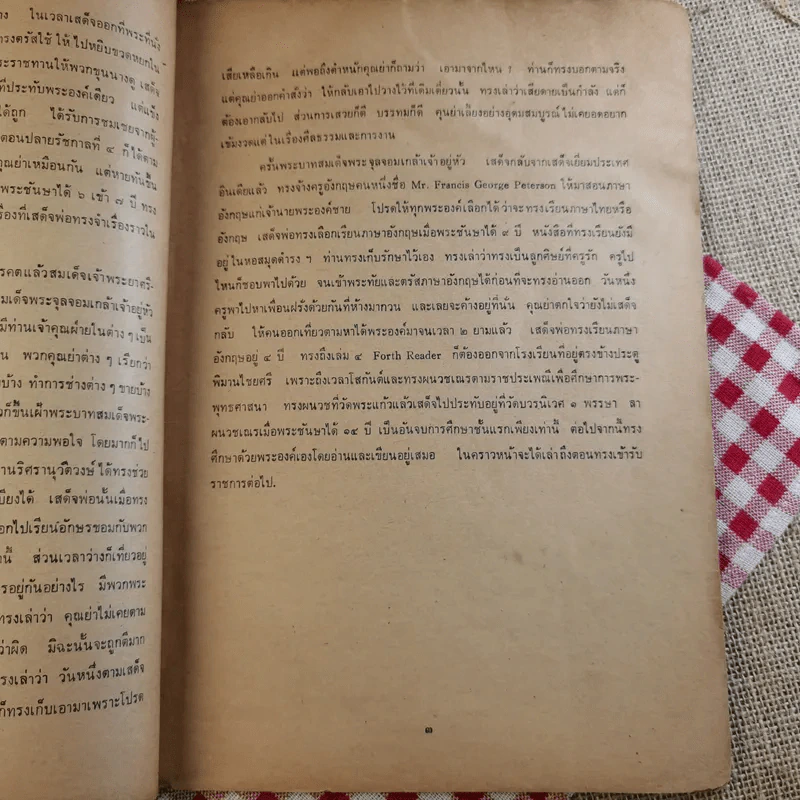 ง ในเวลาเสด็จออกที่พระที่นั่ง
ทรงตรัสใช้ ให้ไปหยิบขวดหยกใน
ระราชทานให้พวกขุนนางดู เสด็จ
ที่ประทับพระองค์เดียว แต่แข็ง
ได้ถูก ได้รับการชมเชยจากผู้
ตอนปลายรัชกาลที่ ๔ ก็ได้ตาม
คุณย่าเหมือนกัน แต่หายทันขึ้น
พระชันษาได้ ๖ เข้า ๗ ปี ทรง
รื่องที่เสด็จพ่อทรงจำเรื่องราวใน
รคตแล้วสมเด็จเจ้าพระยาศรี-
มเด็จพระจุลจอมเกล้าเจ้าอยู่หัว
มีท่านเจ้าคุณฝ่ายในต่าง ๆ เป็น
น พวกคุณย่าต่าง ๆ เรียกว่า
บ้าง ทำการช่างต่าง ๆ ขายบ้าง
วก็ขึ้นเฝ้าพระบาทสมเด็จพระ-
ตามความพอใจ โดยมากก็ไป
านริศรานุวัดิวงษ์ ได้ทรงช่วย
บียงได้ เสด็จพ่อนั้นเมื่อทรง
อกไปเรียนอักษรขอมกับพวก
านี้ ส่วนเวลาว่างก็เที่ยวอยู่
รอยู่กันอย่างไร มีพวกพระ
ทรงเล่าว่า คุณย่าไม่เคยตาม
ว่าผิด มิฉะนั้นจะถูกตีมาก
รงเล่าว่า วันหนึ่งตามเสด็จ
ก็ทรงเก็บเอามาเพราะโปรด
เสียเหลือเกิน แต่พอถึงตำหนักคุณย่าก็ถามว่า เอามาจากไหน ? ท่านก็ทรงบอกตามจริง
แต่คุณย่าออกคำสั่งว่า ให้กลับเอาไปวางไว้ที่เดิมเดี๋ยวนั้น ทรงเล่าว่าเสียดายเป็นกำลัง แต่ก็
ต้องเอากลับไป ส่วนการเสวยก็ดี บรรทมก็ดี คุนย่าเลี้ยงอย่างอุดมสมบูรณ์ ไม่เคยอดอยาก
เข้มงวดแต่ในเรื่องศีลธรรมและการงาน
ครั้นพระบาทสมเด็จพระจุลจอมเกล้าเจ้าอยู่หัว เสด็จกลับจากเสด็จเยี่ยมประเทศ
อินเดียแล้ว ทรงจ้างครูอังกฤษคนหนึ่งชื่อ Mr. Francis George Peterson ให้มาสอนภาษา
อังกฤษแก่เจ้านายพระองค์ชาย โปรดให้ทุกพระองค์เลือกได้ว่าจะทรงเรียนภาษาไทยหรือ
อังกฤษ เสด็จพ่อทรงเลือกเรียนภาษาอังกฤษเมื่อพระชันษาได้ ๙ ปี หนังสือที่ทรงเรียนยังมี
อยู่ในหอสมุดดำรง ฯ ท่านทรงเก็บรักษาไว้เอง ทรงเล่าว่าทรงเป็นลูกศิษย์ที่ครูรัก ครูไป
ไหนก็ชอบพาไปด้วย จนเข้าพระทัยและตรัสภาษาอังกฤษได้ก่อนที่จะทรงอ่านออก วันหนึ่ง
ครูพาไปหาเพื่อนฝรั่งด้วยกันที่ห้างมากวน และเลยจะค้างอยู่ที่นั่น คุณย่าตกใจว่ายังไม่เสด็จ
กลับ ให้คนออกเที่ยวตามหาได้พระองค์มาจนเวลา ๒ ยามแล้ว เสด็จพ่อทรงเรียนภาษา
อังกฤษอยู่ ๔ ปี ทรงถึงเล่ม ๔ Forth Reader ก็ต้องออกจากโรงเรียนที่อยู่ตรงข้างประตู
พิมานไชยศรี เพราะถึงเวลาโสกันต์และทรงผนวชเณรตามราชประเพณีเพื่อศึกษาการพระ-
พุทธศาสนา ทรงผนวชที่วัดพระแก้วแล้วเสด็จไปประทับอยู่ที่วัดบวรนิเวศ ๑ พรรษา ลา
ผนวชเณรเมื่อพระชันษาได้ ๑๔ ปี เป็นอันจบการศึกษาชั้นแรกเพียงเท่านี้ ต่อไปจากนี้ทรง
ศึกษาด้วยพระองค์เองโดยอ่านและเขียนอยู่เสมอ ในคราวหน้าจะได้เล่าถึงตอนทรงเข้ารับ
ราชการต่อไป.
๓